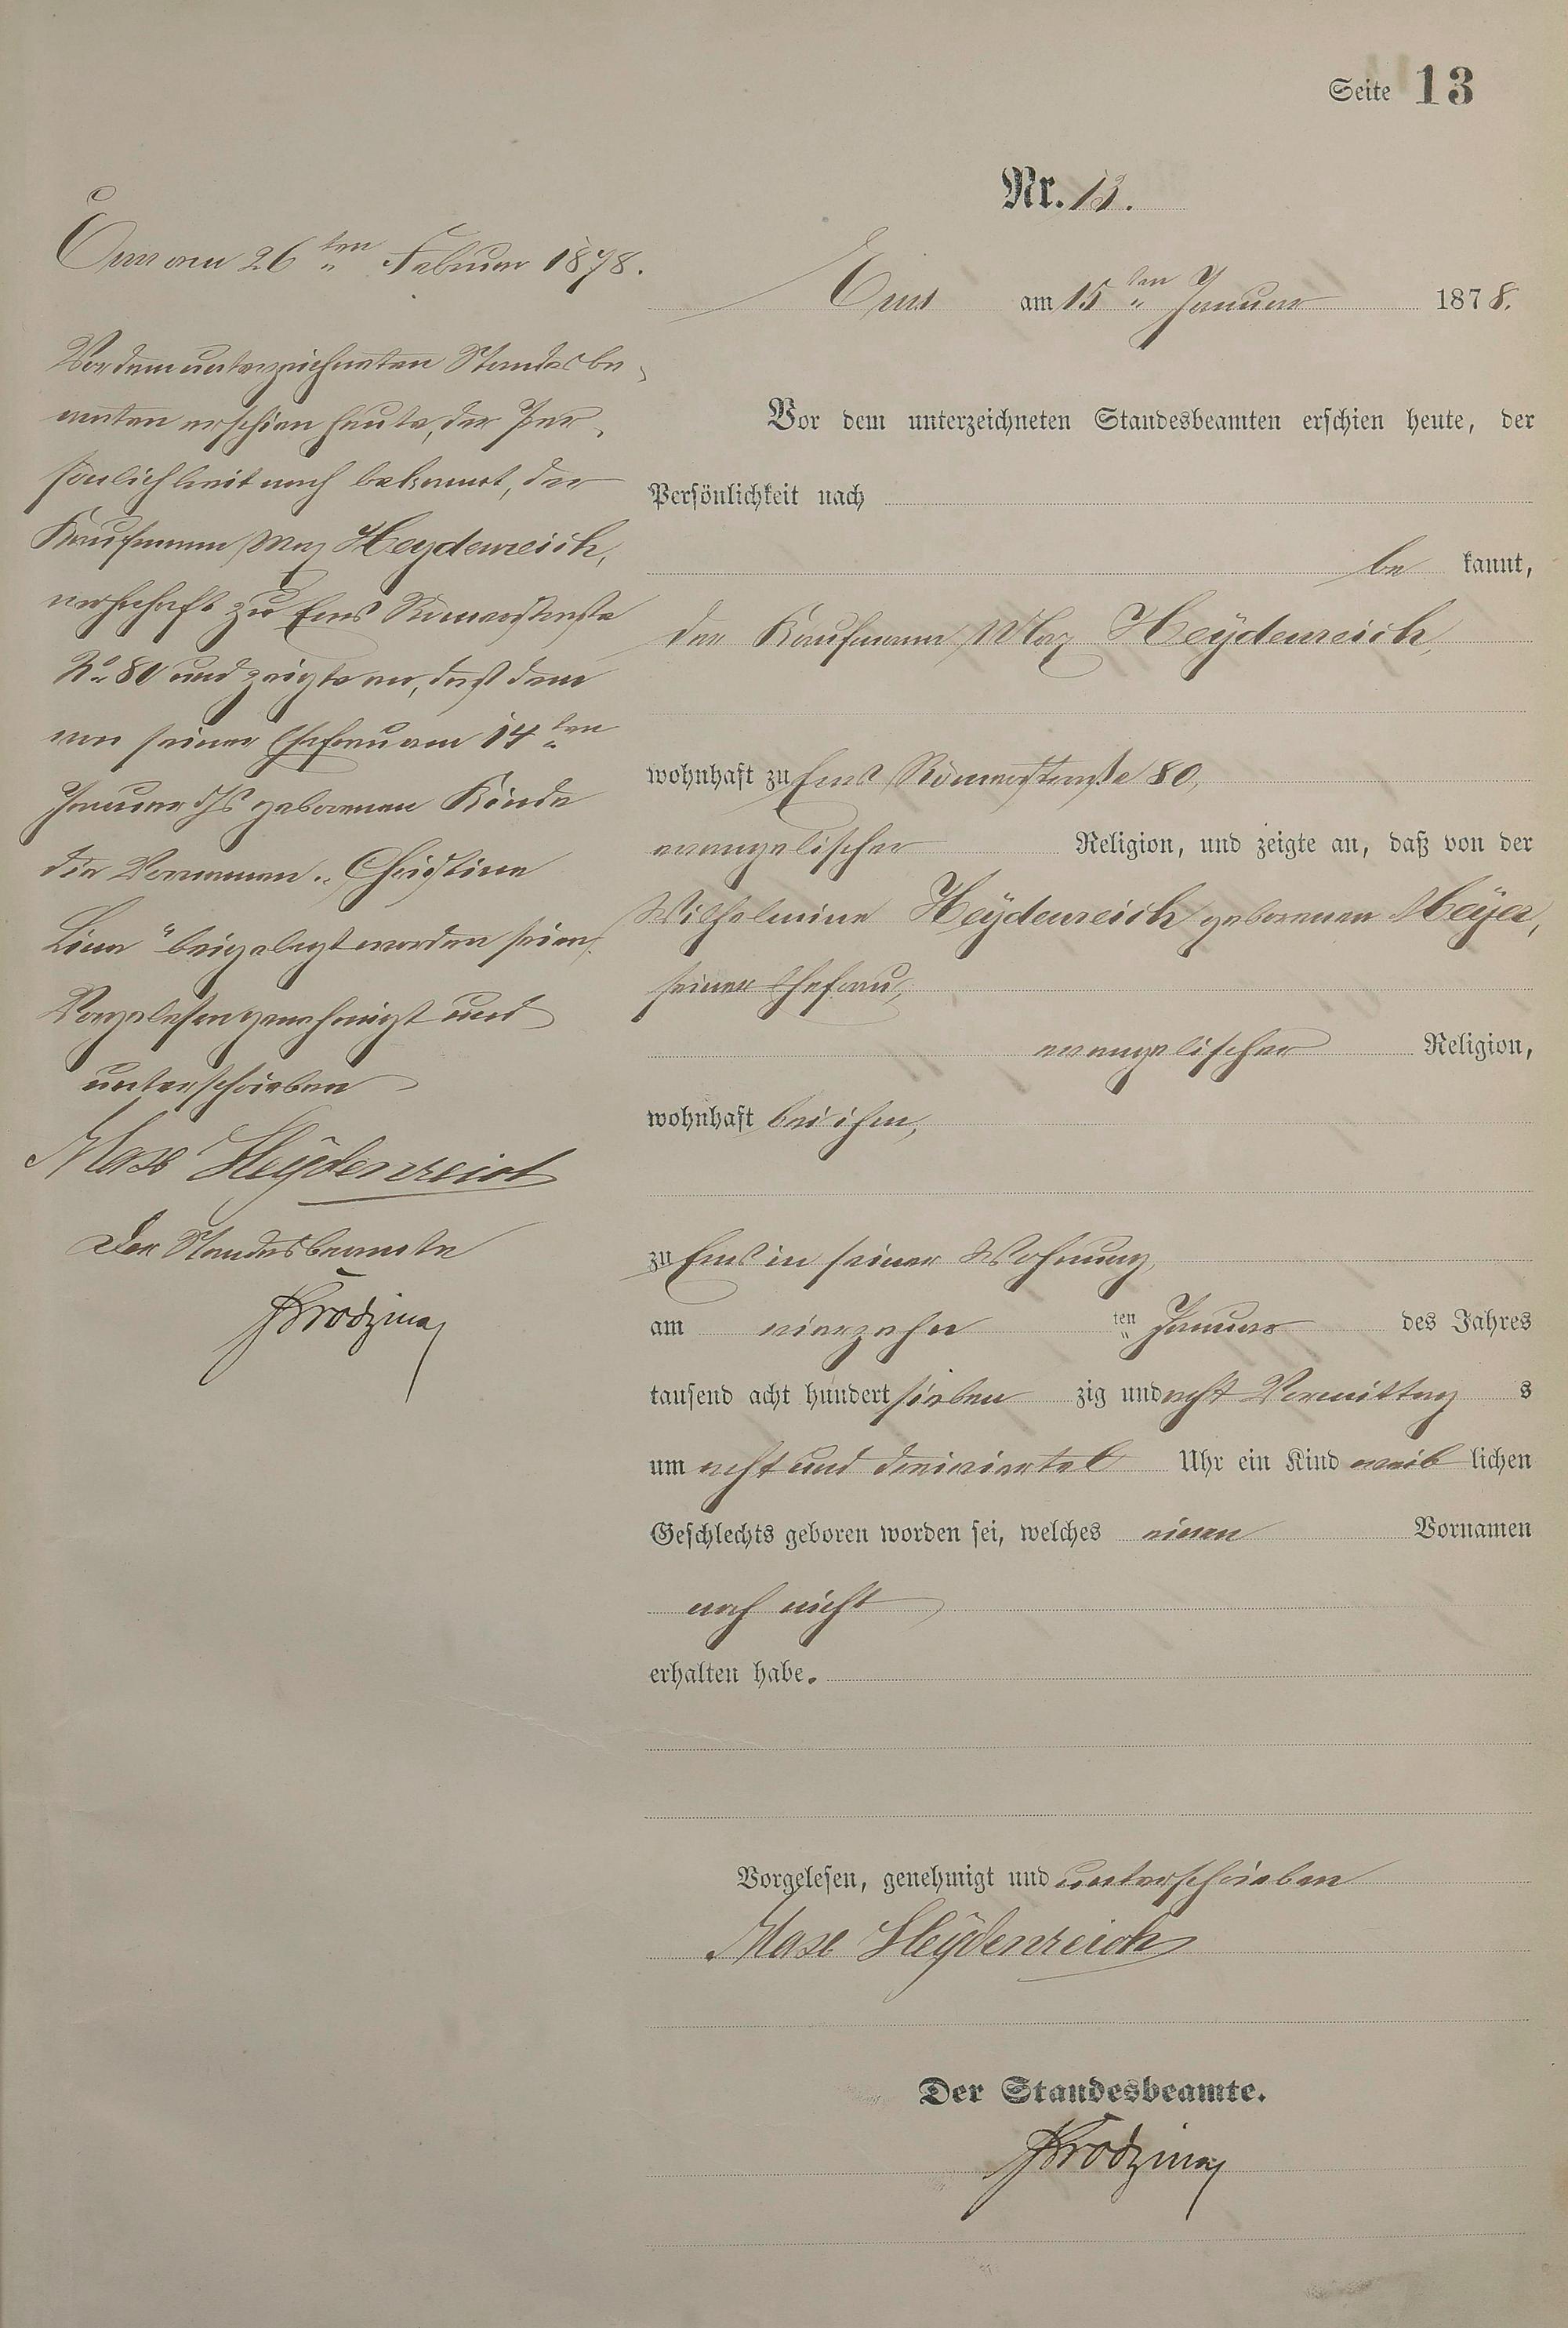 Seite 13
Nr. 13.
Ems am 15ten Januar 1878.
Vor dem unterzeichneten Standesbeamten erschien heute, der
Persönlichkeit nach
be kannt,
der Kaufmann Max Heÿdenreich,
wohnhaft zu Ems Römerstraße 80,
evangelischer Religion, und zeigte an, daß von der
Wilhelmine Heÿdenreich geborenen Meÿer,
seiner Ehefrau,
evangelischer Religion,
wohnhaft bei ihm,
zu Ems in seiner Wohnung,
am vierzehn ten Januar des Jahres
tausend acht hundert sieben zig und acht Vormittag s
um acht und dreiviertel Uhr ein Kind weib lichen
Geschlechts geboren worden sei, welches einen Vornamen
noch nicht
erhalten habe.
Vorgelesen, genehmigt und unterschrieben
Max Heÿdenreich
Der Standesbeamte.
Ems am 26ten Februar 1878.
Vor dem unterzeichneten Standesbe-
amten erschien heute, der Per-
sönlichkeit nach bekannt, der
Kaufmann Max Heydenreich,
wohnhaft zu Ems Römerstraße
No 80 und zeigte an, daß dem
von seiner Ehefrau am 14ten
Januar ds Js geborenen Kinde
die Vornamen „Christine
Lina" beigelegt worden seien.
Vorgelesen genehmigt und
unterschrieben
Max Heÿdenreich
Der Standesbeamte